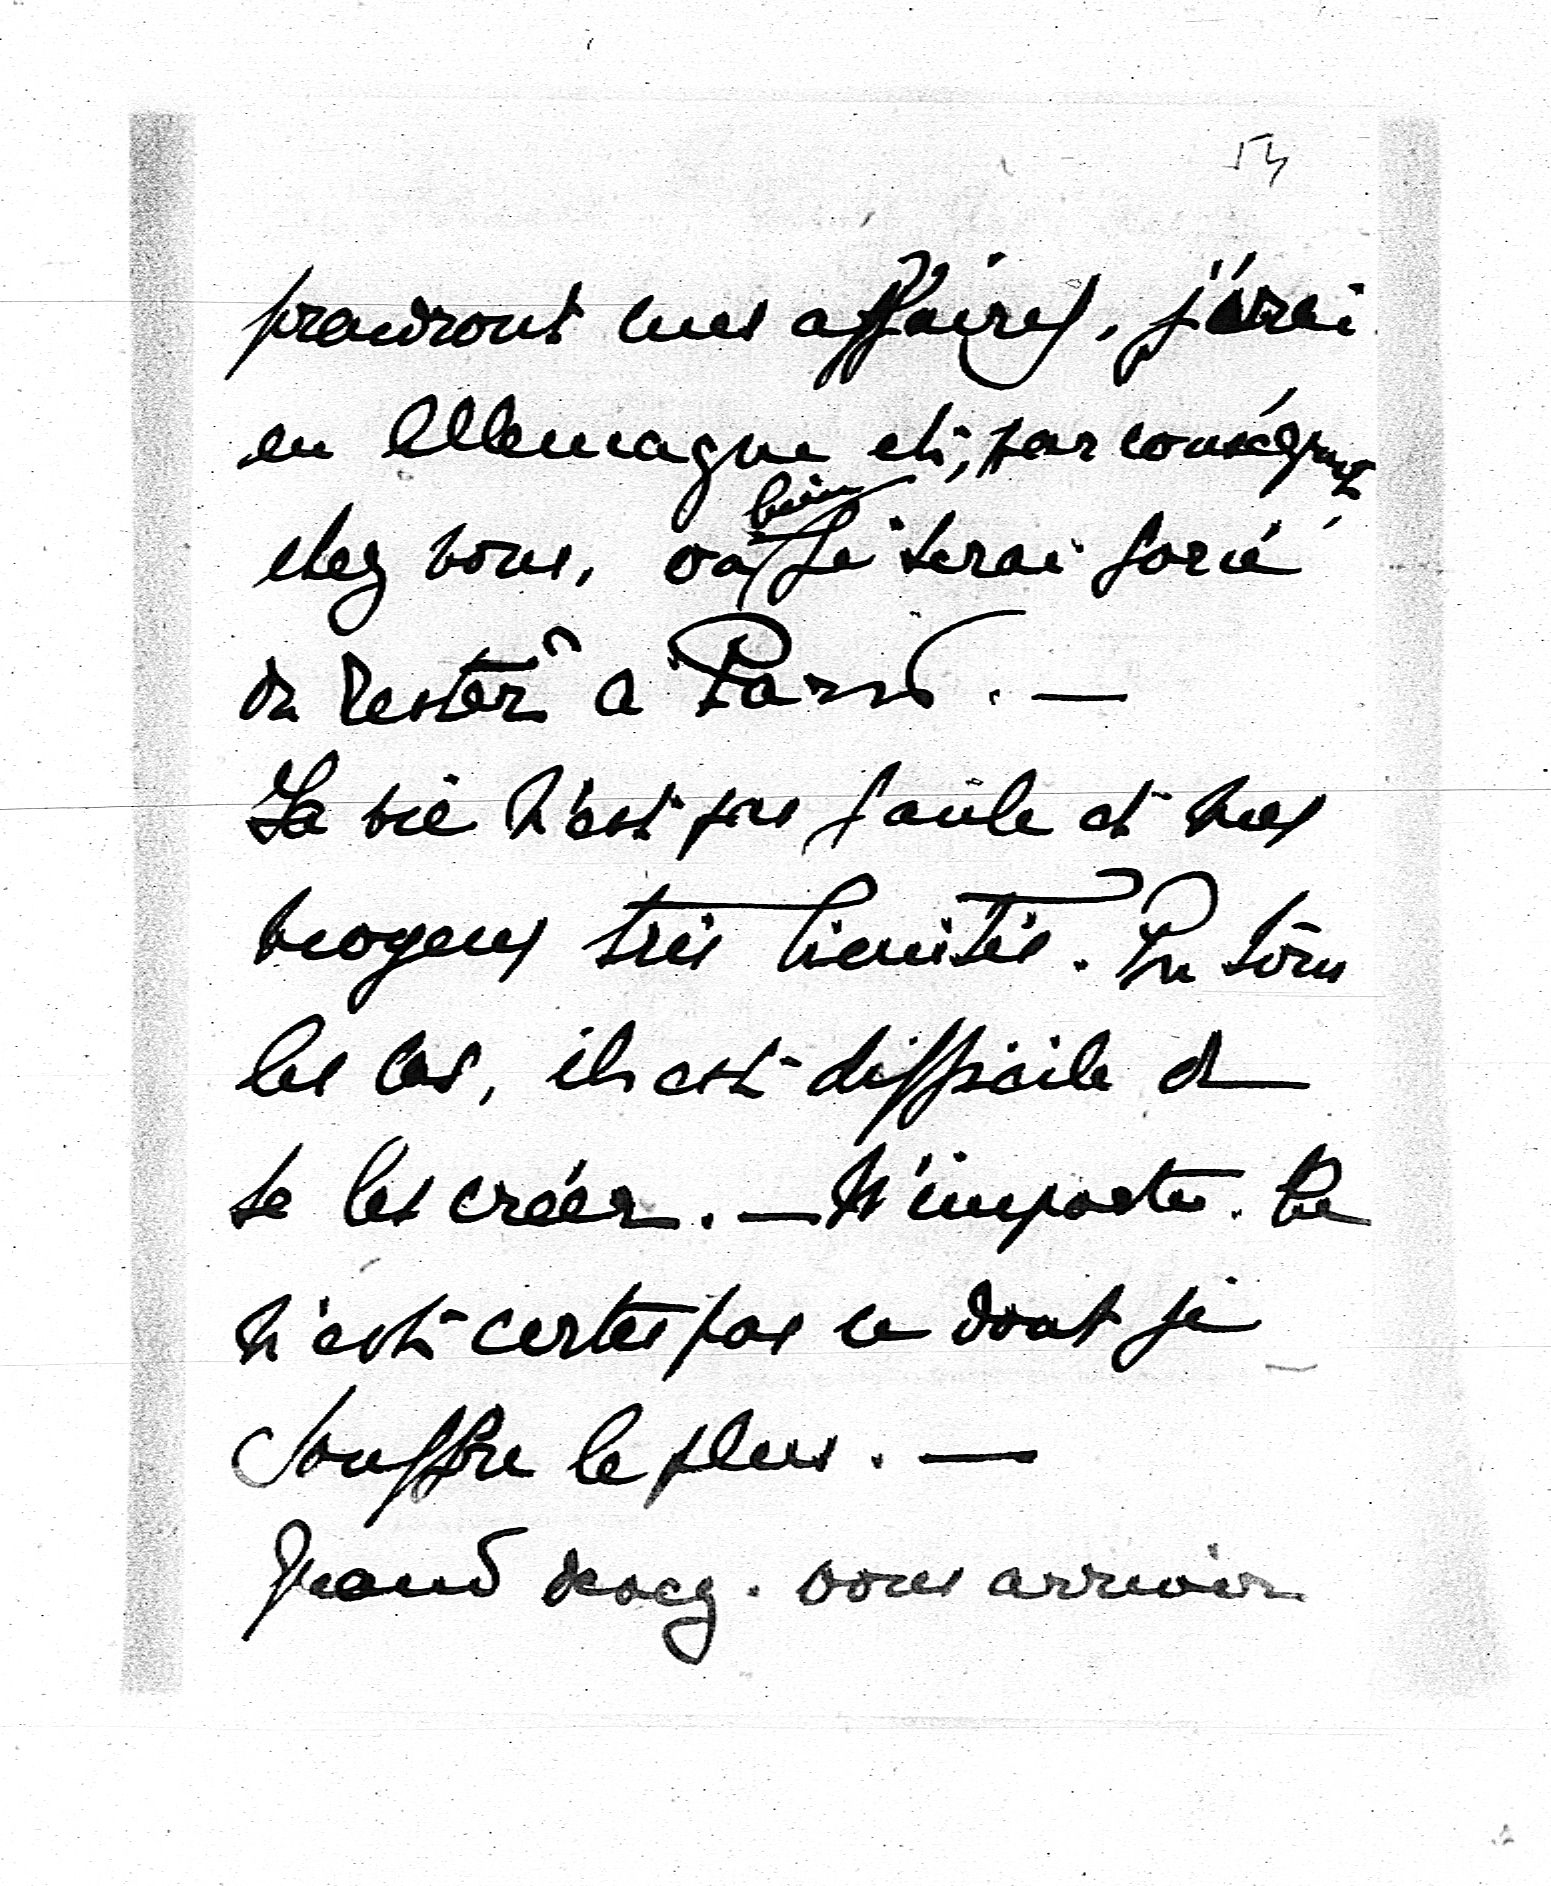 54
prendront mes affaires, j'irai
en Allemagne et, par conséquent
chez vous, ou bien je serai forcé
de rester à Paris. —
La vie n'est pas facile et mes
moyens très limités. En tous
les cas, il est difficile de
se les créer. — N'importe. Ce
n'est certes pas ce dont je
souffre le plus. —
Quand vous arriver